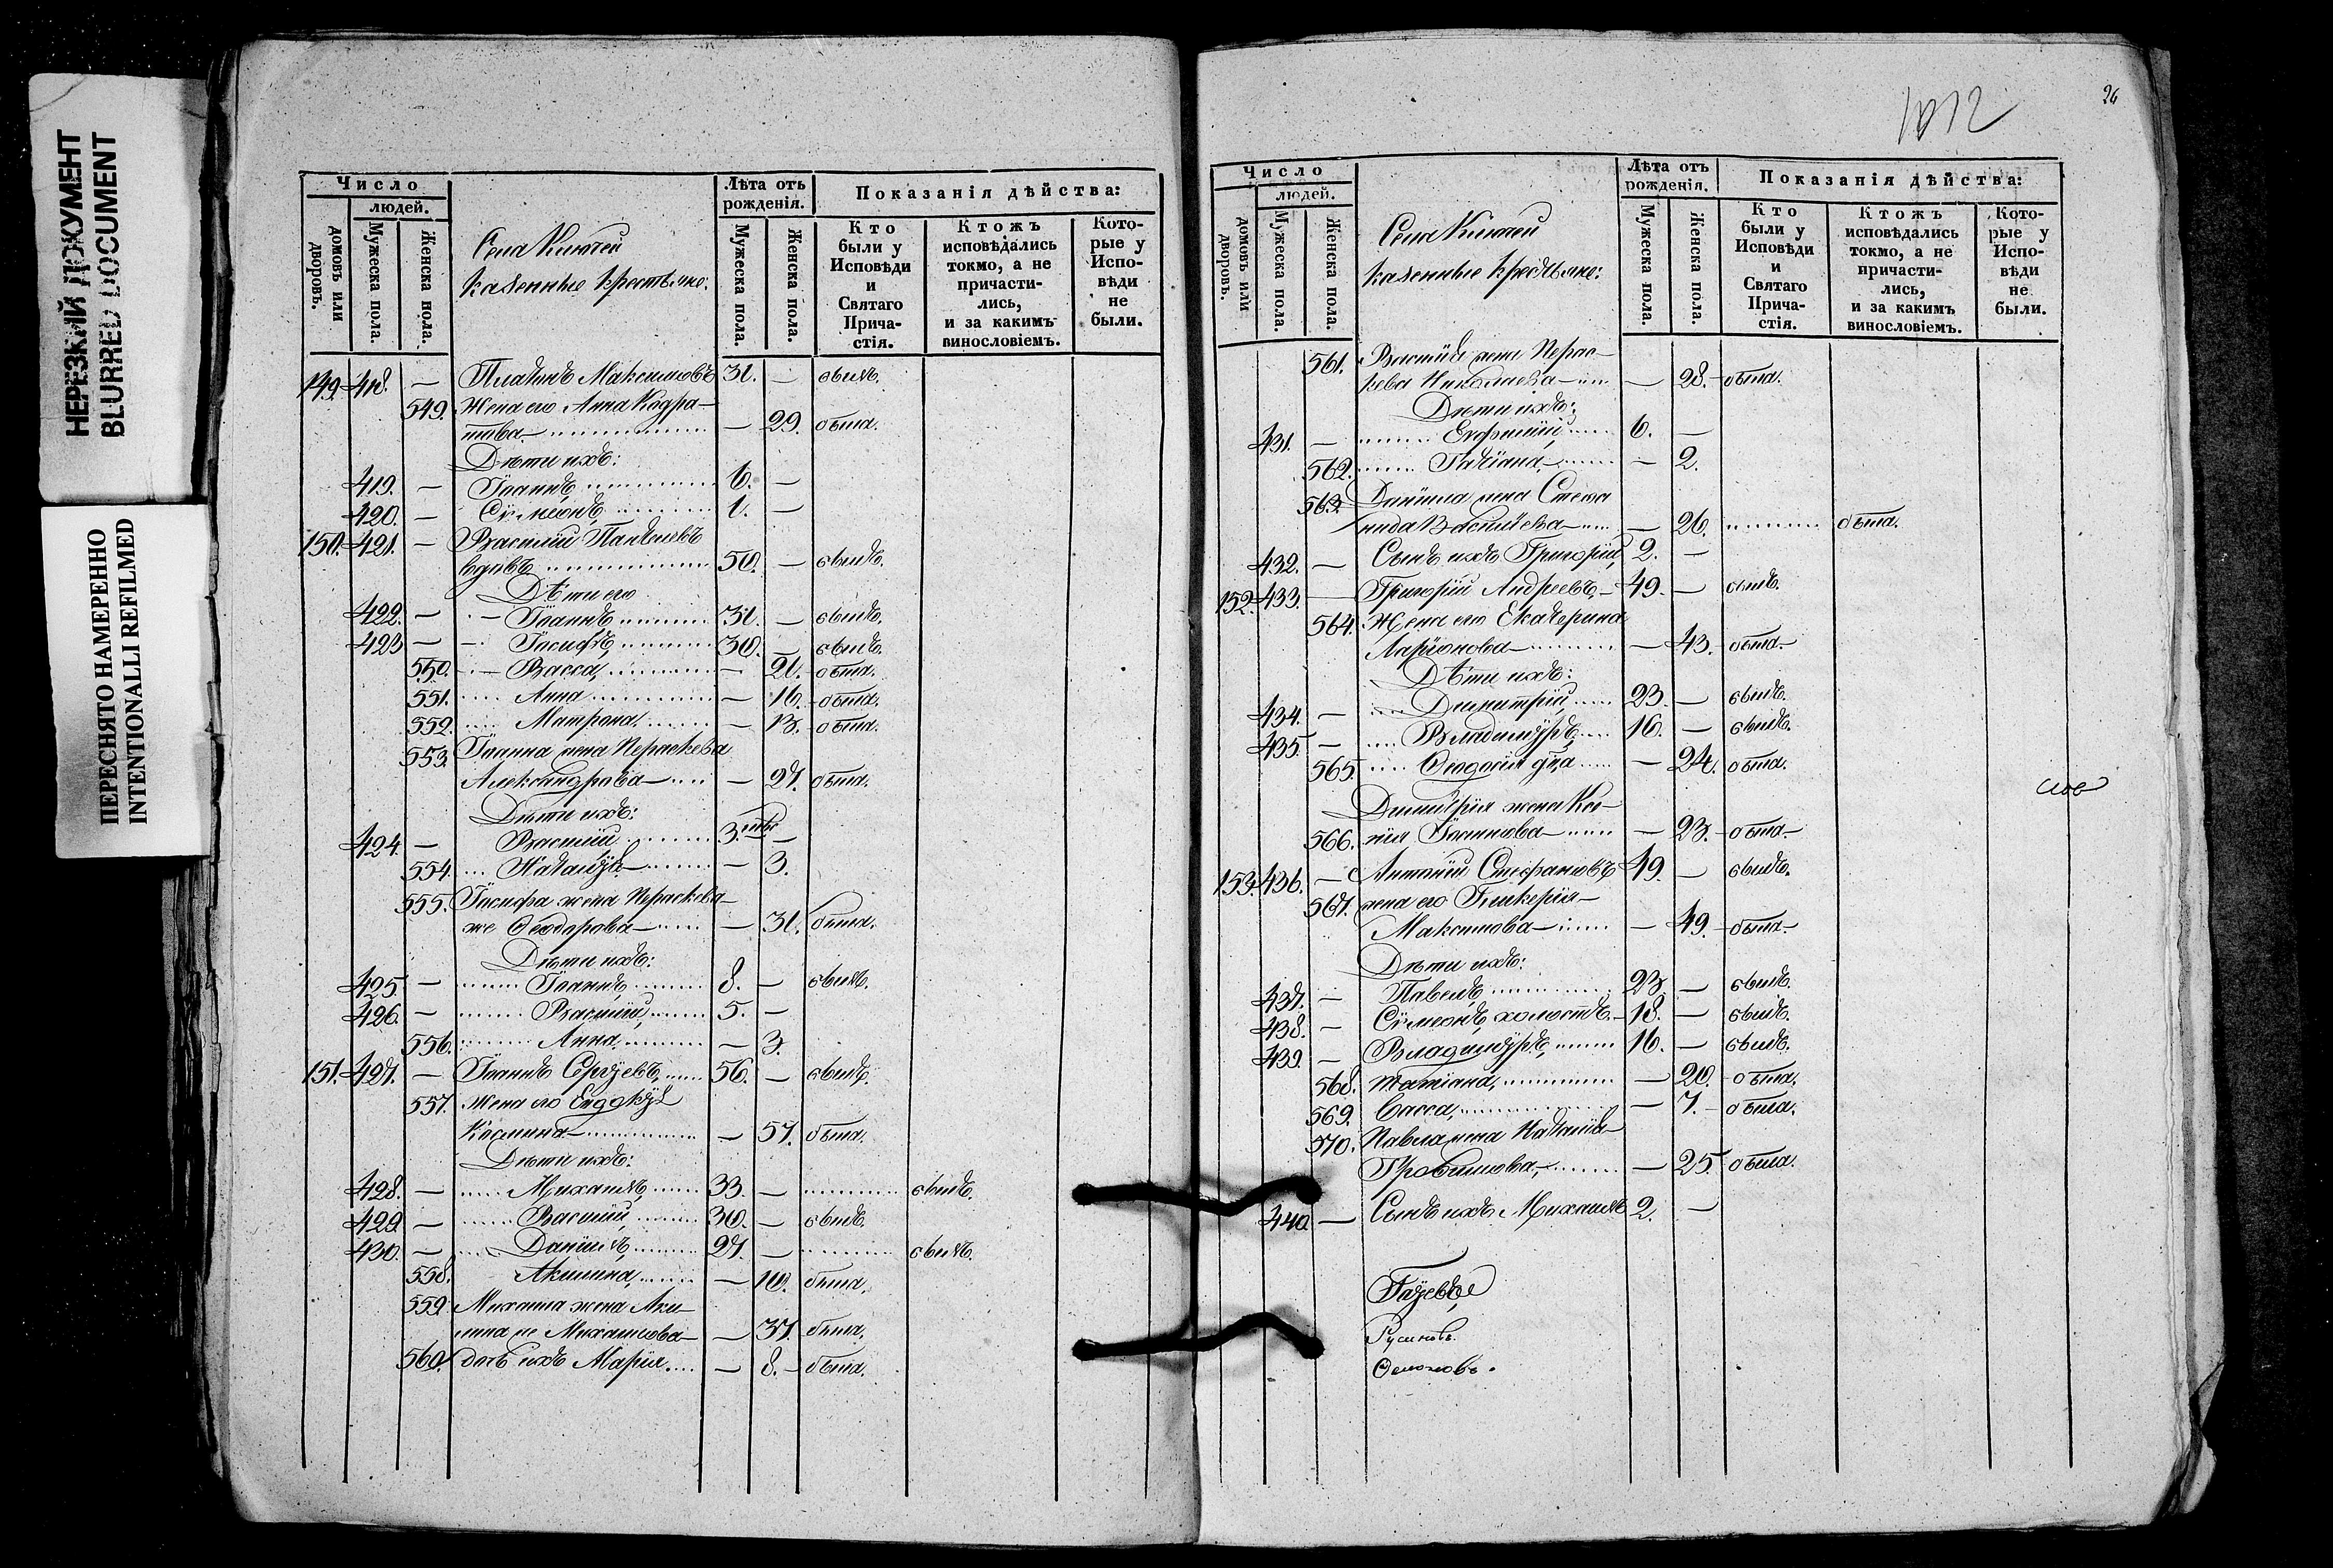 НЕРЕЗКИЙ ДОКУМЕНТ
BLURRED DOCUMENT
ПЕРЕСНЯТО НАМЕРЕННО
INTENTIONALLI REFILMED
Число
людей.
домовъ или дворовъ.
Мужеска пола.
Женска пола.
Села
казенные крестьяне:
Лѣта отъ рожденія.
Мужеска пола.
Женска пола.
Показанія дѣйства:
Кто были у Исповѣди и Святаго Прича-стія.
Ктожъ исповѣдались токмо, а не причасти-лись, и за какимъ винословіемъ.
Кото-рые у Испо-вѣди не были.
149. 418. — Платонъ Максимовъ 31. — былъ.
549. Жена его Анна Кодра-
това — 29. была.
Дѣти ихъ:
419. — Іоаннъ 6. —
420. — Сѵмеонъ 1. —
150. 421. — Василій
вдовъ 50. — былъ.
Дѣти его
422. — Іоаннъ 31. — былъ.
423 — Іосифъ 30. — былъ.
550. Васса — 21. была.
551. Анна — 16. была.
552. Матрона — 13. была.
553. Іоанна жена Параскева
Александрова — 27. была.
Дѣти ихъ:
424. — Василій 3. —
554. Наталія — 3.
555. Іосифа жена Параскева
же Ѳеодорова — 31. была.
Дѣти ихъ:
425. — Іоаннъ 8. — былъ.
426. — Василій 5. —
556. Анна — 3.
151. 427. — Іоаннъ Сергѣевъ 56. — былъ.
557. Жена его Евдокія
Космина — 57. была.
Дѣти ихъ:
428. — Михаилъ 33. — былъ.
429. — Василій 30. — былъ.
430. — Даніилъ 27. — былъ.
558. Акилина — 10. была.
559. Михаила жена Аки-
лина же Михаилова — 37. была.
560. дочь ихъ Марія — 8. была.
1012
26
Число
людей.
домовъ или дворовъ.
Мужеска пола.
Женска пола.
Села
казенные крестьяне:
Лѣта отъ рожденія.
Мужеска пола.
Женска пола.
Показанія дѣйства:
Кто были у Исповѣди и Святаго Прича-стія.
Ктожъ исповѣдались токмо, а не причасти-лись, и за какимъ винословіемъ.
Кото-рые у Испо-вѣди не были.
561. Василія жена Парас-
кева Николаева — 28. была.
Дѣти ихъ:
431. — Евфимій 6. —
562. Татіана — 2.
563. Даніила жена Стефа
нида Васильева — 26. была.
432. — Сынъ ихъ Григорій 2. —
152. 433. — Григорій Андреевъ 49. — былъ.
564. Жена его Екатерина
Ларіонова — 43. была.
Дѣти ихъ:
434. — Димитрій 23. — былъ.
435. — Владиміръ 16. — былъ.
565. Ѳеодосія — 24. была.
Димитрія жена Кс-
566. нія Іоаннова — 23. была.
153. 436. — Антоній Стефановъ 49. — былъ.
567. жена его Гликерія
Максимова — 49. была.
Дѣти ихъ:
437. — Павелъ 23. — былъ.
438. — Сѵмеонъ холостъ 18. — былъ.
439. — Владиміръ 16. — былъ.
568. Татіана — 20. была.
569. Васса — 7. была.
570. Павла жена Наталія
Трофимова — 25. была.
440 — Сынъ ихъ Михаилъ 2. —
Русиновъ.